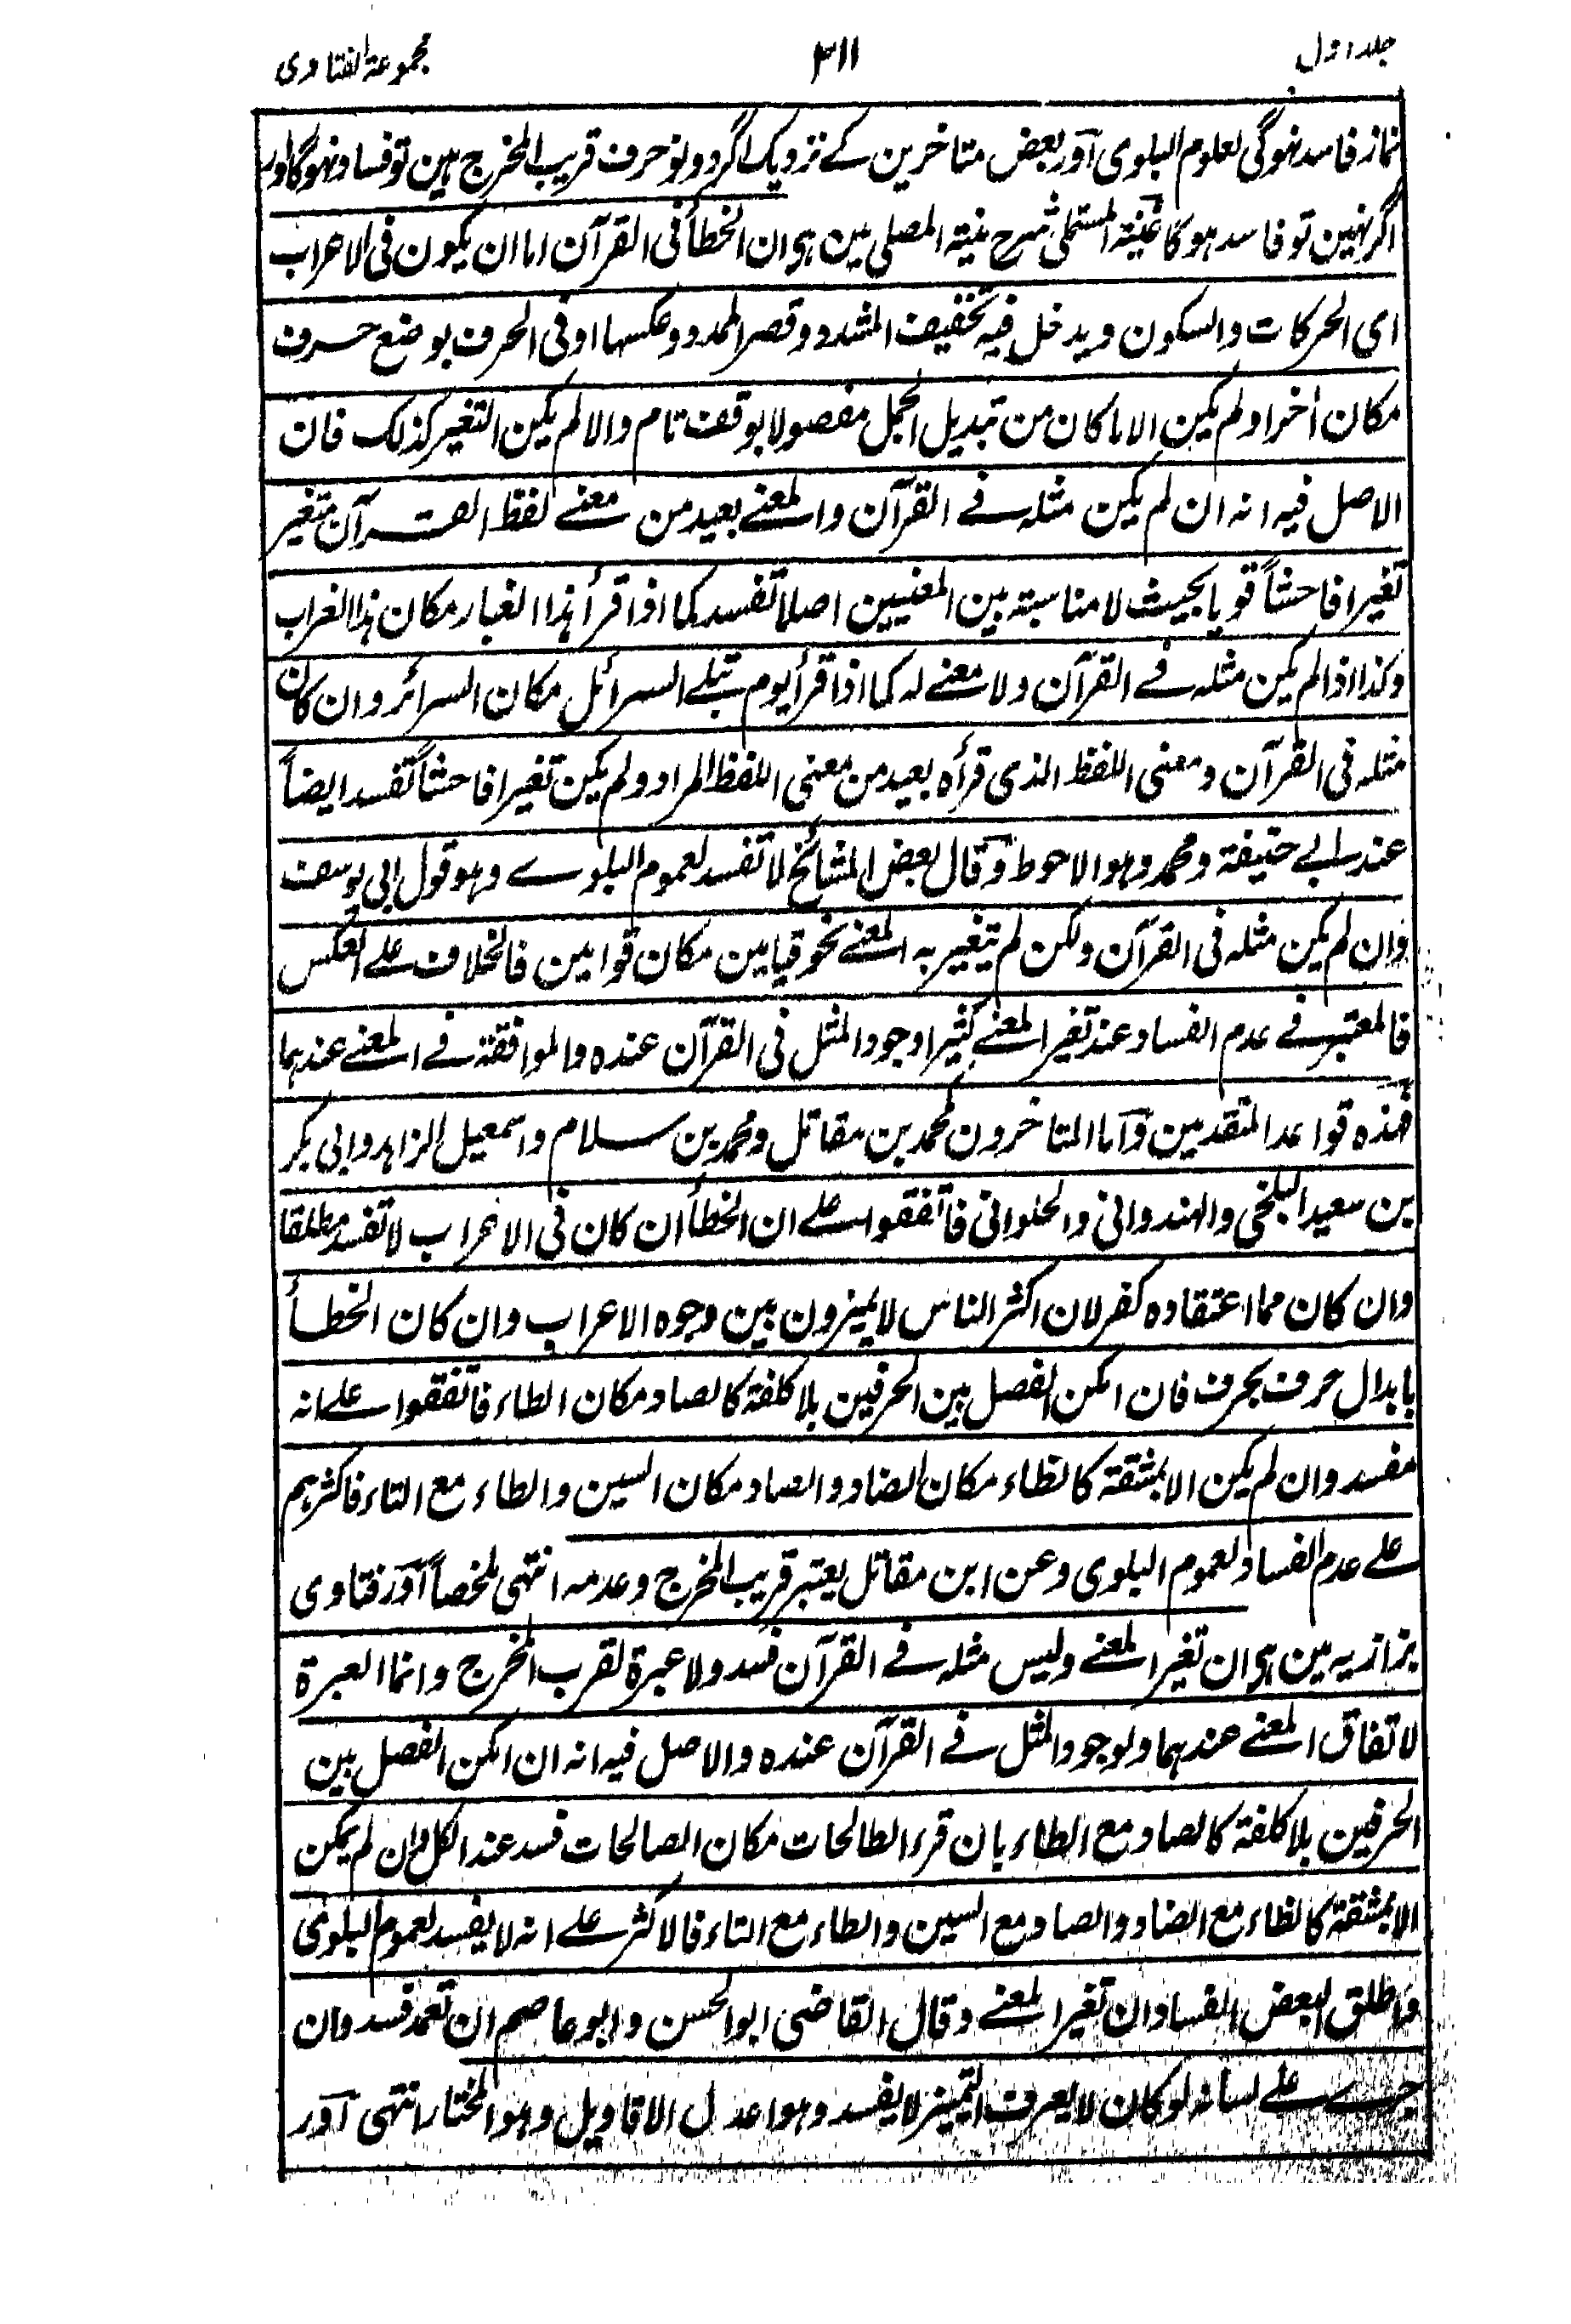 جلد اول ۳۱۱ مجموعۃ الفتاوی
نماز فاسد نہوگی لعلوم البلوی اور بعض متاخرین کے نزدیک اگر دونو حرف قریب المخرج ہین تو فساد نہوگا اور
اگر نہین تو فاسد ہوگا غنیۃ المستملی شرح منیۃ المصلی مین ہی ان الخطأ فی القرآن اما ان یکون فی الاعراب
ای الحرکات والسکون ویدخل فیہ تخفیف المشدد وقصر الممدود وعکسہا او فی الحرف بوضع حرف
مکان أخر او لم یکن الا ما کان من تبدیل الجمل مفصولا بوقف تام والا لم یکن التغیر کذلک فان
الاصل فیہ انہ ان لم یکن مثلہ فے القرآن والمعنے بعید من معنے لفظ القرآن متغیر
تغیرا فاحشاً قویا بحیث لا مناسبتہ بین المعنیین اصلا تفسد کما اذا قرأ ہذا الغبار مکان ہذا الغراب
وکذا اذا لم یکن مثلہ فے القرآن ولا معنے لہ کما اذا قرأ یوم تبلے السرائل مکان السرائر وان کان
مثلہ فی القرآن ومعنی اللفظ الذی قرأہ بعید من معنی اللفظ المراد ولم یکن تغیرا فاحشاً تفسد ایضاً
عند ابے حنیفۃ ومحمد وہو الاحوط وقال بعض المشائخ لا تفسد لعموم البلوے وہو قول ابی یوسف
وان لم یکن مثلہ فی القرآن ولکن لم یتغیر بہ المعنے نحو قیامین مکان قوامین فالخلاف علے العکس
فالمعتبر فے عدم الفساد عند تغیر المعنے کثیرا وجود المثل فی القرآن عندہ والموافقۃ فے المعنے عندہما
فہذہ قواعد المتقدمین واما المتاخرون کمحمد بن مقاتل ومحمد بن سلام واسمعیل الزاہد وابی بکر
بن سعید البلخی والہندوانی والحلوانی فاتفقوا علے ان الخطأ ان کان فی الاعراب لا تفسد مطلقا
وان کان مما اعتقادہ کفر لان اکثر الناس لا یمیزون بین وجوہ الاعراب وان کان الخطأ
بابدال حرف بحرف فان امکن الفصل بین الحرفین بلا کلفۃ کالصاد مکان الطاء فاتفقوا علے انہ
مفسد وان لم یکن الا بمشقۃ کالظاء مکان الضاد والصاد مکان السین والطاء مع التاء فاکثرہم
علے عدم الفساد لعموم البلوی وعن ابن مقاتل یعتبر قریب المخرج وعدمہ انتہی ملخصاً اور فتاوی
بزازیہ مین ہی ان تغیر المعنے ولیس مثلہ فے القرآن فسد ولا عبرۃ لقرب المخرج وانما العبرۃ
لاتفاق المعنے عندہما ولوجود المثل فے القرآن عندہ والاصل فیہ انہ ان امکن الفصل بین
الحرفین بلا کلفۃ کالصاد مع الطاء بان قرء الطالحات مکان الصالحات فسد عند الکل وان لم یمکن
الا بمشقۃ کالظاء مع الضاد والصاد مع السین والطاء مع التاء فالاکثر علے انہ لا یفسد لعموم البلوی
واطلق البعض الفساد ان تغیر المعنے وقال القاضی ابو الحسن وابو عاصم ان تعمد فسد وان
جرے علے لسانہ او کان لا یعرف التمییز لا یفسد وہو اعدل الاقاویل وہو المختار انتہی اور